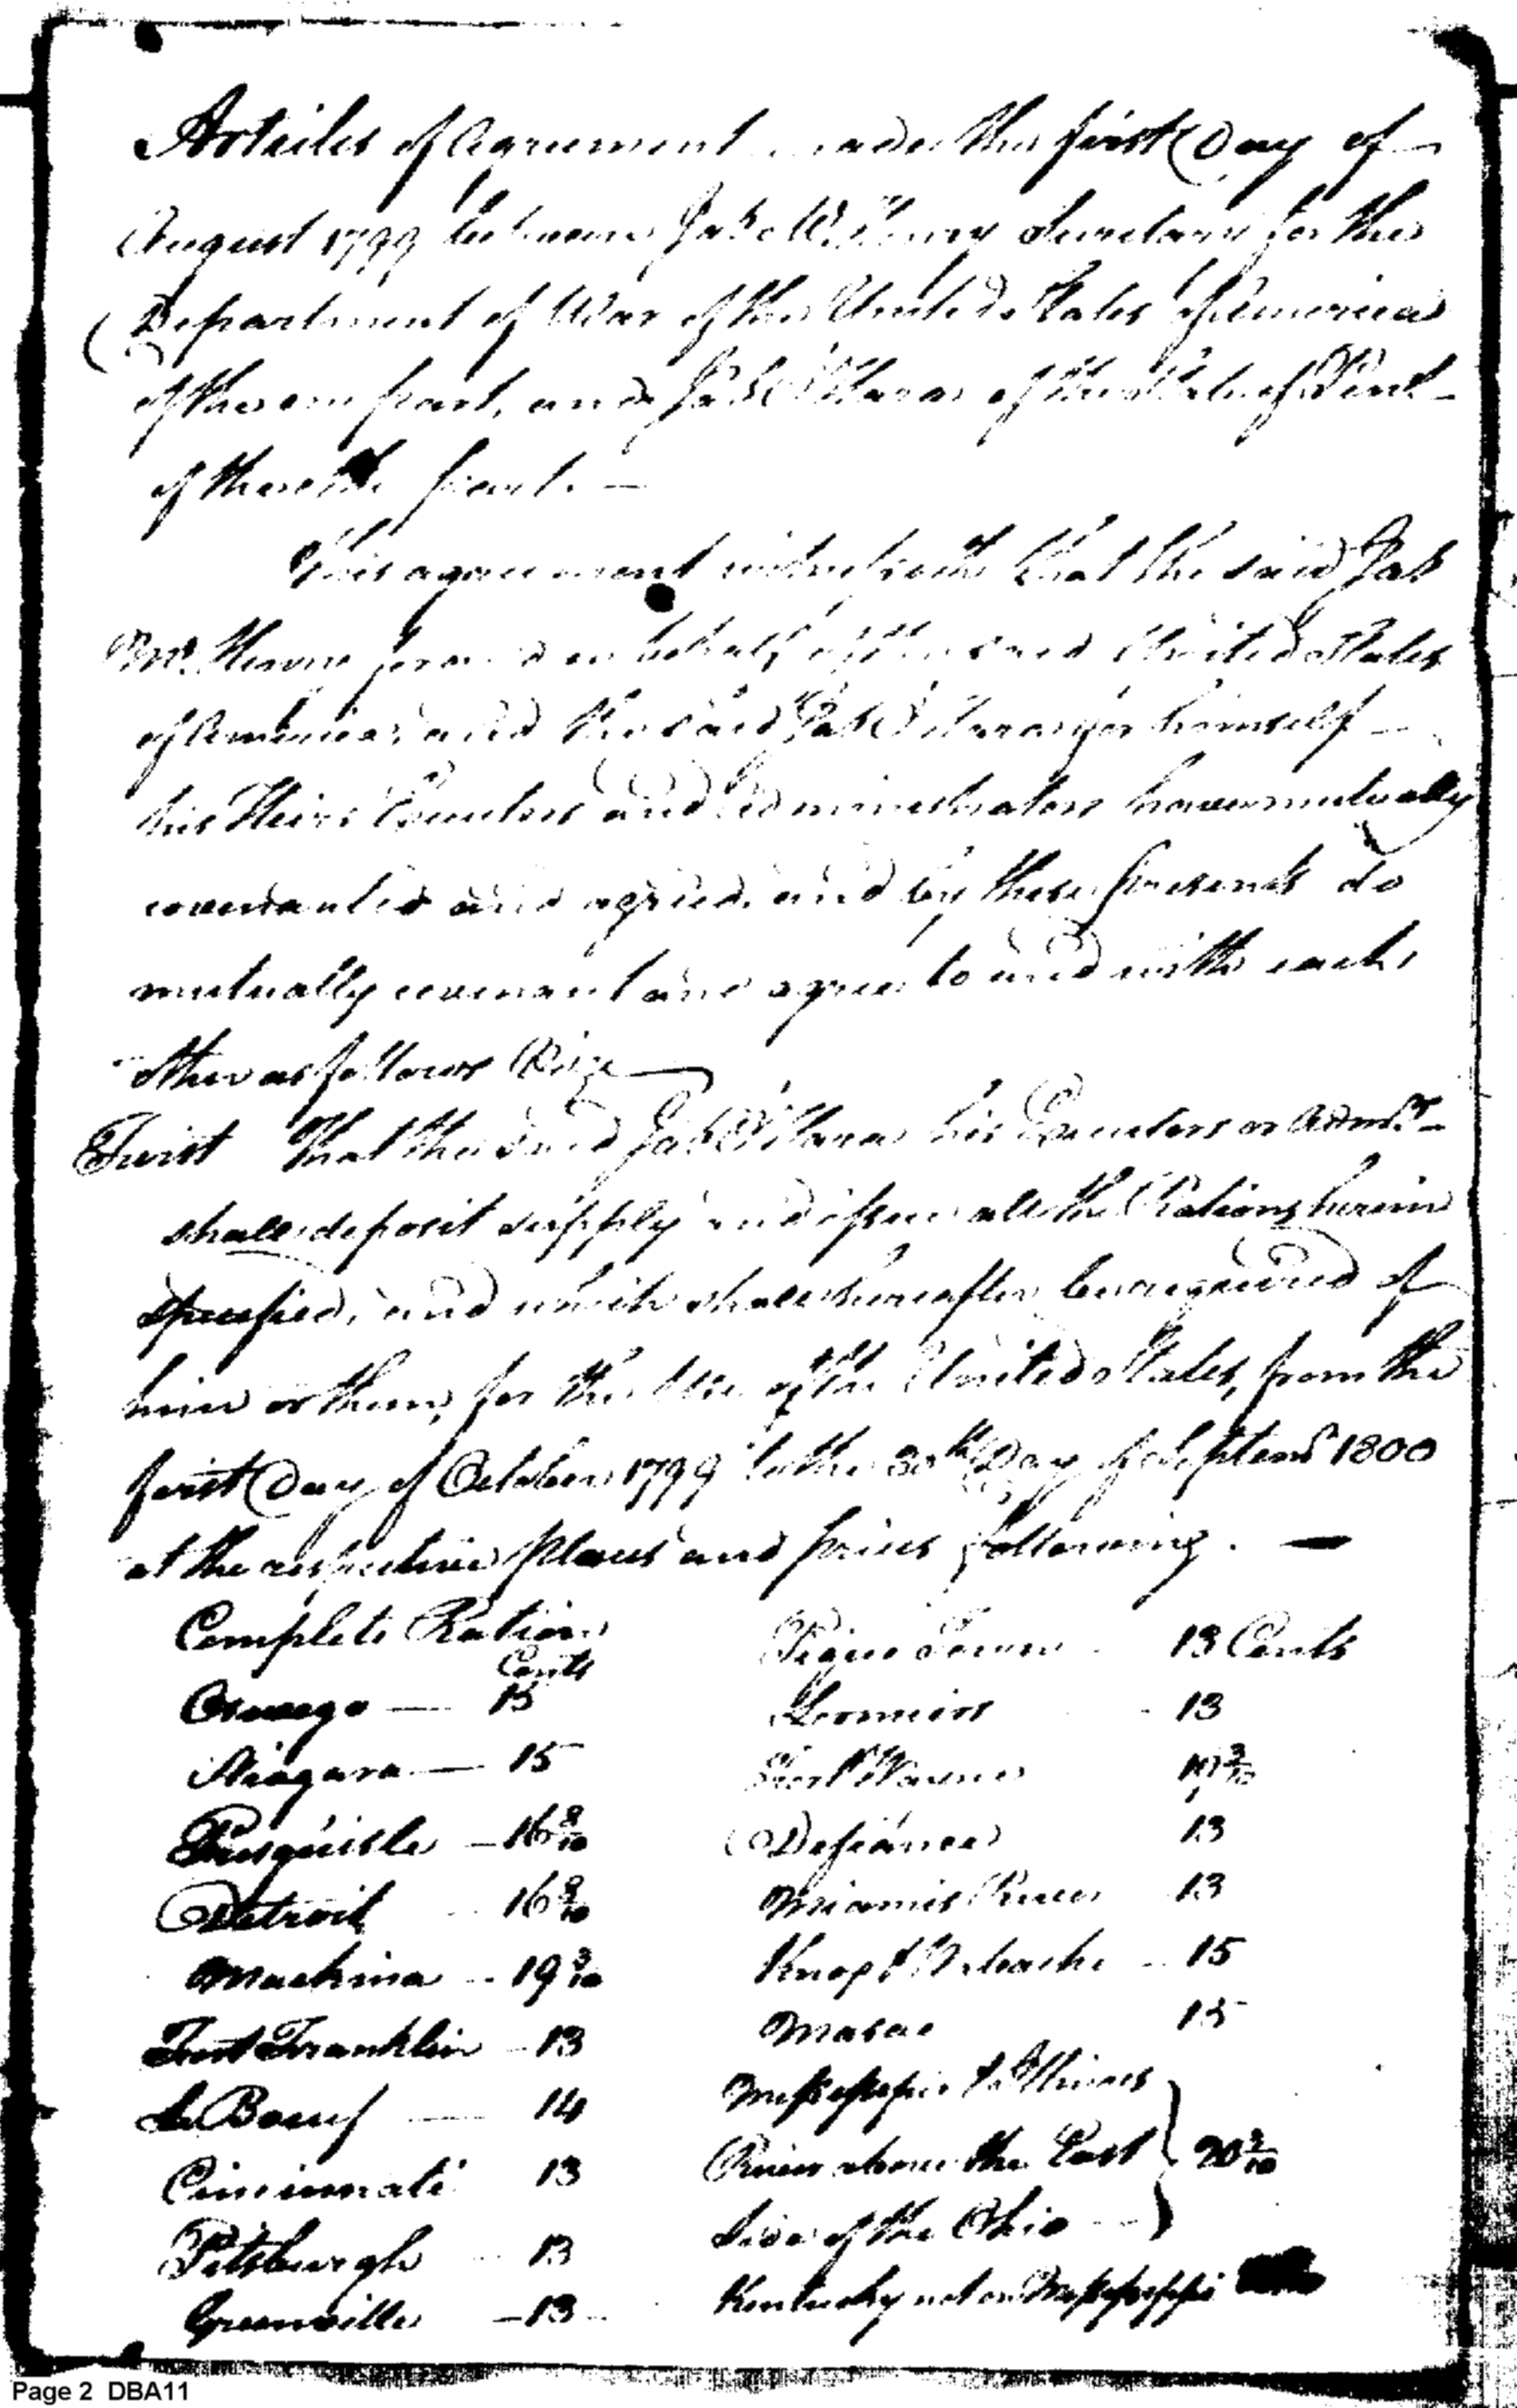 Articles of Agreement made this first Day of
August 1799 between Jas McHenry Secretary for the
Department of War of the United States of America
of the one part, and Jas O'Hara of the State of
of the part. —
This agreement witnesseth that the said Jas
McHenry for and on behalf of the said United States
of America and the said Jas O'Hara for himself —
his Heirs Executors and Administrators have mutually
covenanted and agreed, and by these presents do
mutually covenant and agree to and with each
other as follows Vizt —
First That the said Jas O'Hara his Executors or Admrs —
shall deposit supply and issue all the Rations herein
specified, and which shall hereafter be required of
him or them, for the Use of the United States, from the
first Day of October 1799 to the 30th Day of Septemr 1800
at the respective places and prices following. —
Complete Rations
Cents
Oswego — 15
Niagara — 15
Presquisle — 16 8/10
Detroit - 16 8/10
Mackina - 19 3/10
Fort Franklin - 13
Le Boeuf — 14
Cincinnati 13
Pittsburgh - 13
Greenville - 13 -
Pique Town - 13 Cents
Loramies - 13
Fort Wayne 17 3/10
Defiance 13
Miamis River 13
Knox & - 15
Masac 15
Missisippi & Illinois
River above the East
side of the Ohio -- } 20 3/10
Kentucky not on Missisippi
Page 2 DBA11